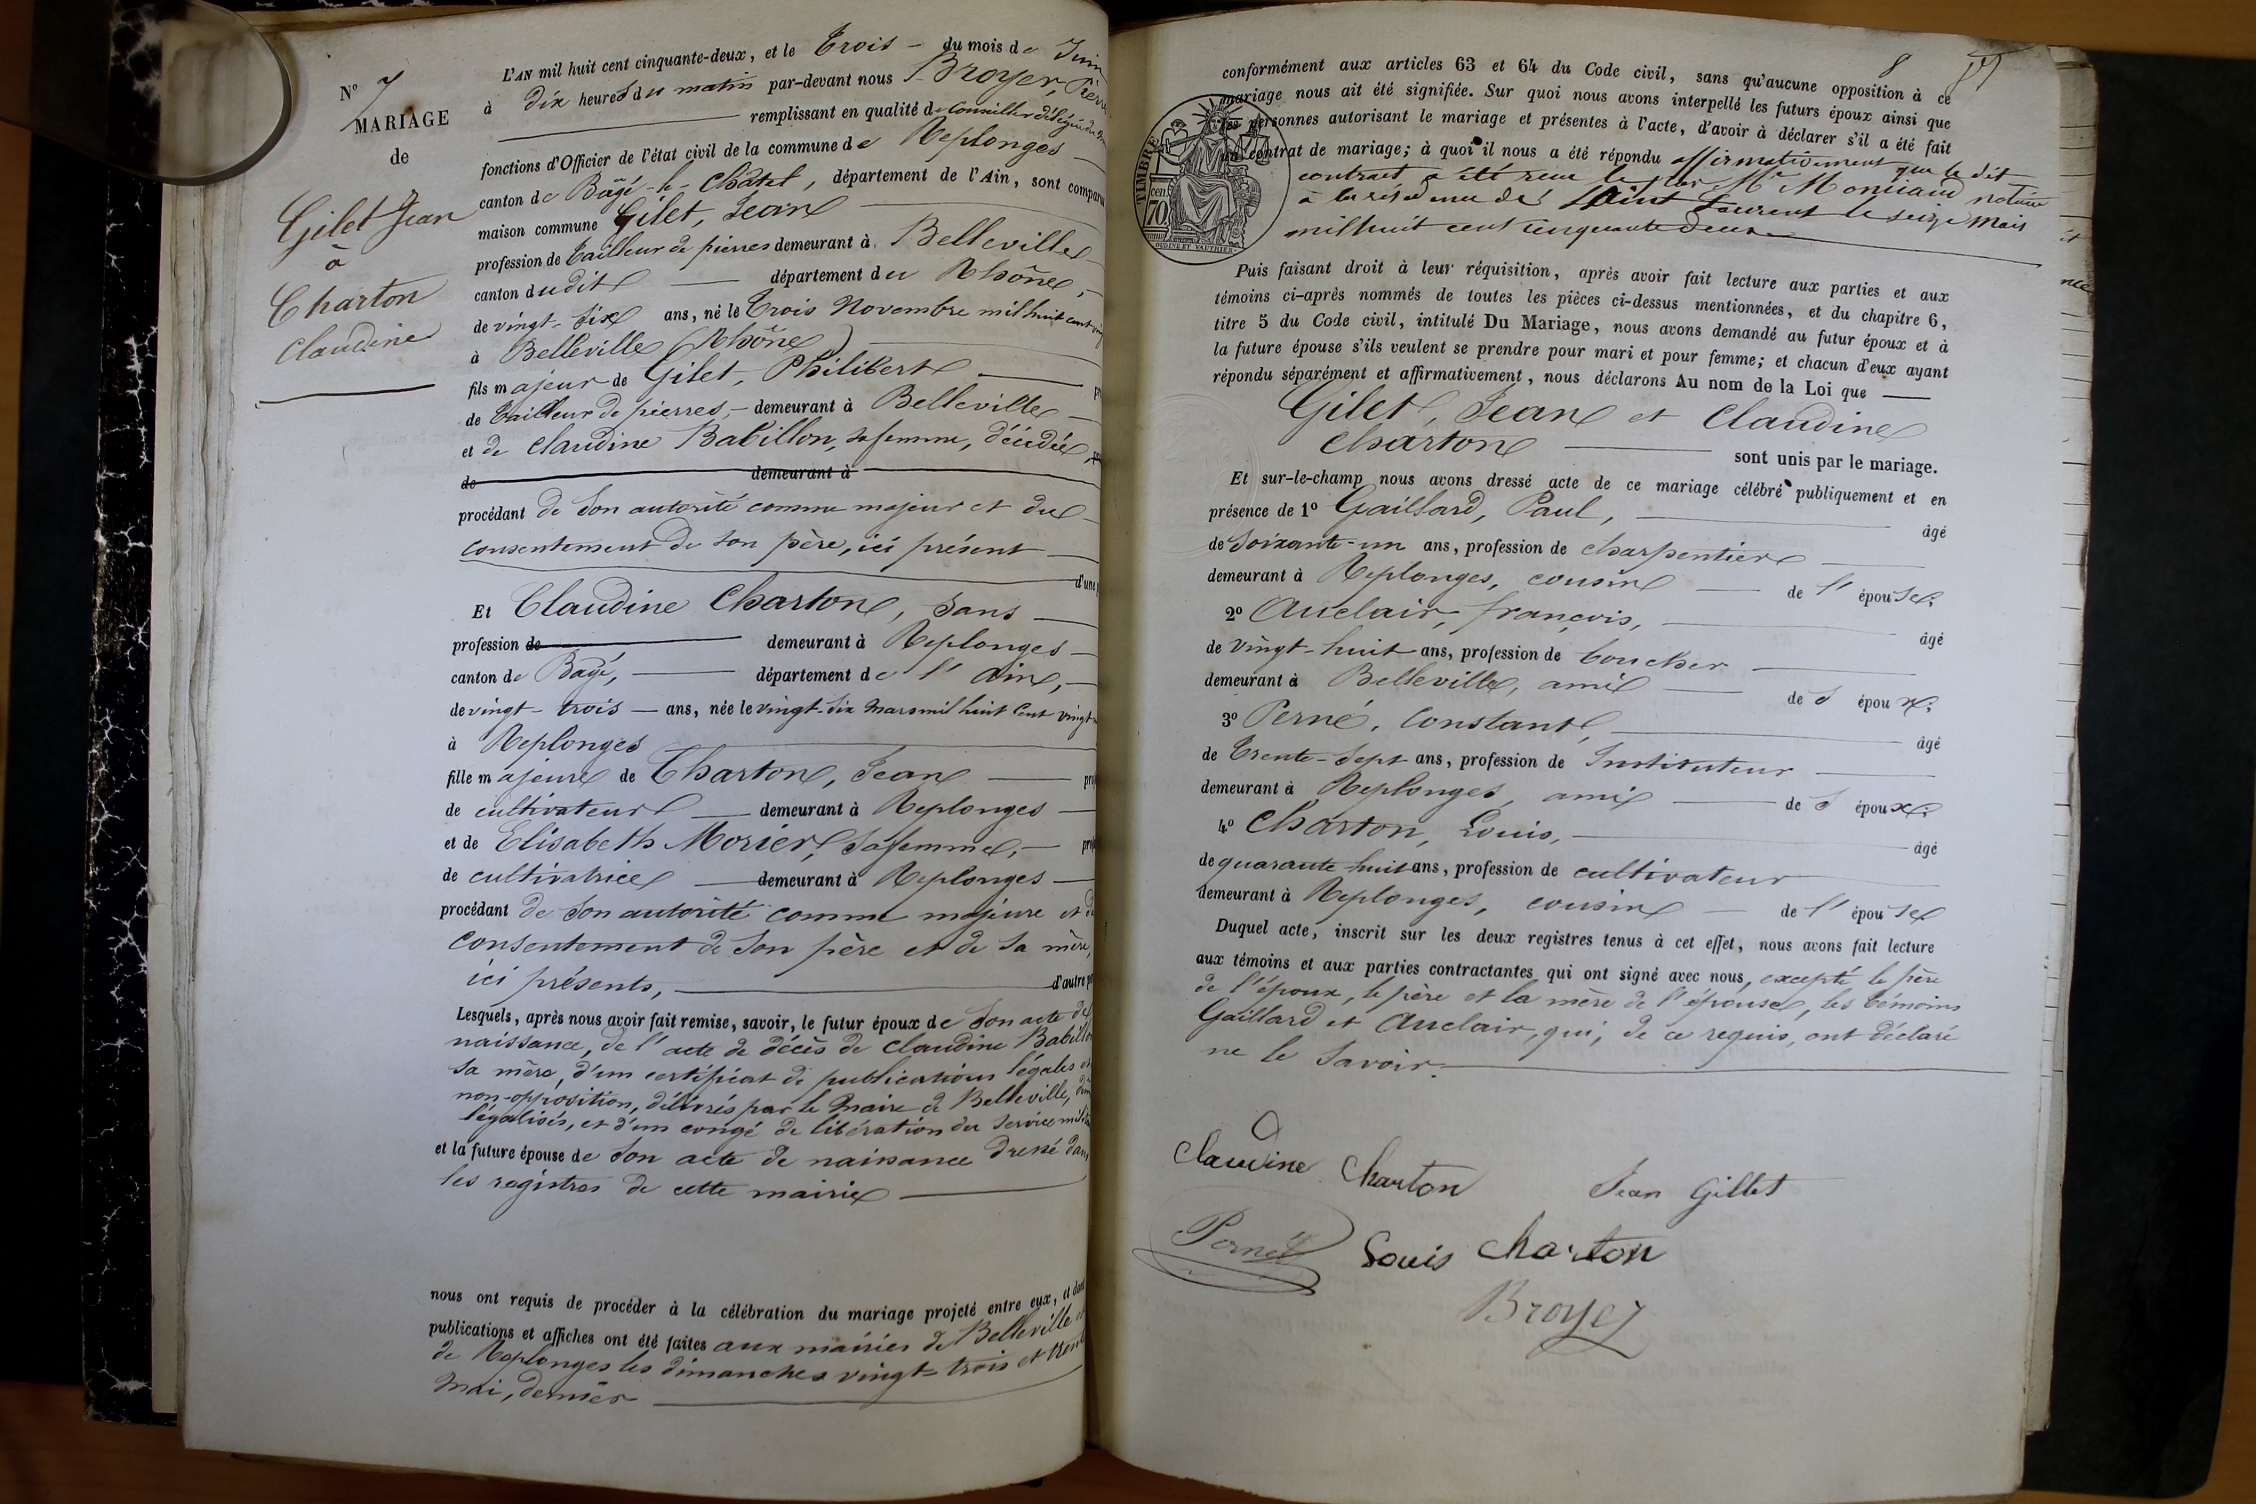 N° 7
MARIAGE
de
Gilet Jean
à
Charton
Claudine
L'AN mil huit cent cinquante-deux, et le Trois du mois de Juin
à dix heures du matin par-devant nous Broyer, Pierre
remplissant en qualité de Conseiller délégué
fonctions d'Officier de l'état civil de la commune de Replonges
canton de Bâgé-le-Châtel, département de l'Ain, sont comparu
maison commune Gilet, Jean
profession de Tailleur de pierres demeurant à Belleville
canton dudit département du Rhône,
de vingt-six ans, né le Trois Novembre mil huit cent
à Belleville (Rhône)
fils majeur de Gilet, Philibert
de Tailleur de pierres, demeurant à Belleville
et de Claudine Babillon, sa femme, décédée
de demeurant à
procédant de son autorité comme majeur et du
consentement de son père, ici présent
d'une
Et Claudine Charton, sans
profession de demeurant à Replonges
canton de Bagé, département de l'Ain,
de vingt-trois ans, née le vingt-six mars mil huit cent vingt
à Replonges
fille majeure de Charton, Jean
de cultivateur demeurant à Replonges
et de Elisabeth Morier, sa femme,
de cultivatrice demeurant à Replonges
procédant de son autorité comme majeure et du
consentement de son père et de sa mère,
ici présents, d'autre
Lesquels, après nous avoir fait remise, savoir, le futur époux de son acte de
naissance, de l'acte de décès de Claudine Babillon
sa mère, d'un certificat de publications légales et
non-opposition, délivrés par le Maire de Belleville,
légalisés, et d'un congé de libération du service
et la future épouse de son acte de naissance dressé dans
les registres de cette mairie
nous ont requis de procéder à la célébration du mariage projeté entre eux, et dont
publications et affiches ont été faites aux mairies de Belleville et
de Replonges les dimanches vingt-trois et trente
Mai, dernier
8
conformément aux articles 63 et 64 du Code civil, sans qu'aucune opposition à ce
mariage nous ait été signifiée. Sur quoi nous avons interpellé les futurs époux ainsi que
les personnes autorisant le mariage et présentes à l'acte, d'avoir à déclarer s'il a été fait
un contrat de mariage; à quoi il nous a été répondu affirmativement que le dit
contrat a été reçu par Me notaire
à la résidence de Saint Laurent le seize Mai
mil huit cent cinquante deux
TIMBRE
cen 70
OUDINÉ ET VAUTHIER
Puis faisant droit à leur réquisition, après avoir fait lecture aux parties et aux
témoins ci-après nommés de toutes les pièces ci-dessus mentionnées, et du chapitre 6,
titre 5 du Code civil, intitulé Du Mariage, nous avons demandé au futur époux et à
la future épouse s'ils veulent se prendre pour mari et pour femme; et chacun d'eux ayant
répondu séparément et affirmativement, nous déclarons Au nom de la Loi que
Gilet, Jean et Claudine
Charton sont unis par le mariage.
Et sur-le-champ nous avons dressé acte de ce mariage célébré publiquement et en
présence de 1° Gaillard, Paul, âgé
de soixante-un ans, profession de charpentier
demeurant à Replonges, cousin de l'épouse;
2° Auclair, françois, âgé
de vingt-huit ans, profession de boucher
demeurant à Belleville, ami de l'époux;
3° Perné, Constant, âgé
de Trente-sept ans, profession de Instituteur
demeurant à Replonges, ami de l'époux;
4° Charton, Louis, âgé
de quarante huit ans, profession de cultivateur
demeurant à Replonges, cousin de l'épouse
Duquel acte, inscrit sur les deux registres tenus à cet effet, nous avons fait lecture
aux témoins et aux parties contractantes qui ont signé avec nous, excepté le père
de l'époux, le père et la mère de l'épouse, les témoins
Gaillard et Auclair, qui, de ce requis, ont déclaré
ne le savoir.
Claudine Charton Jean Gillet
Perné Louis Charton
Broyer